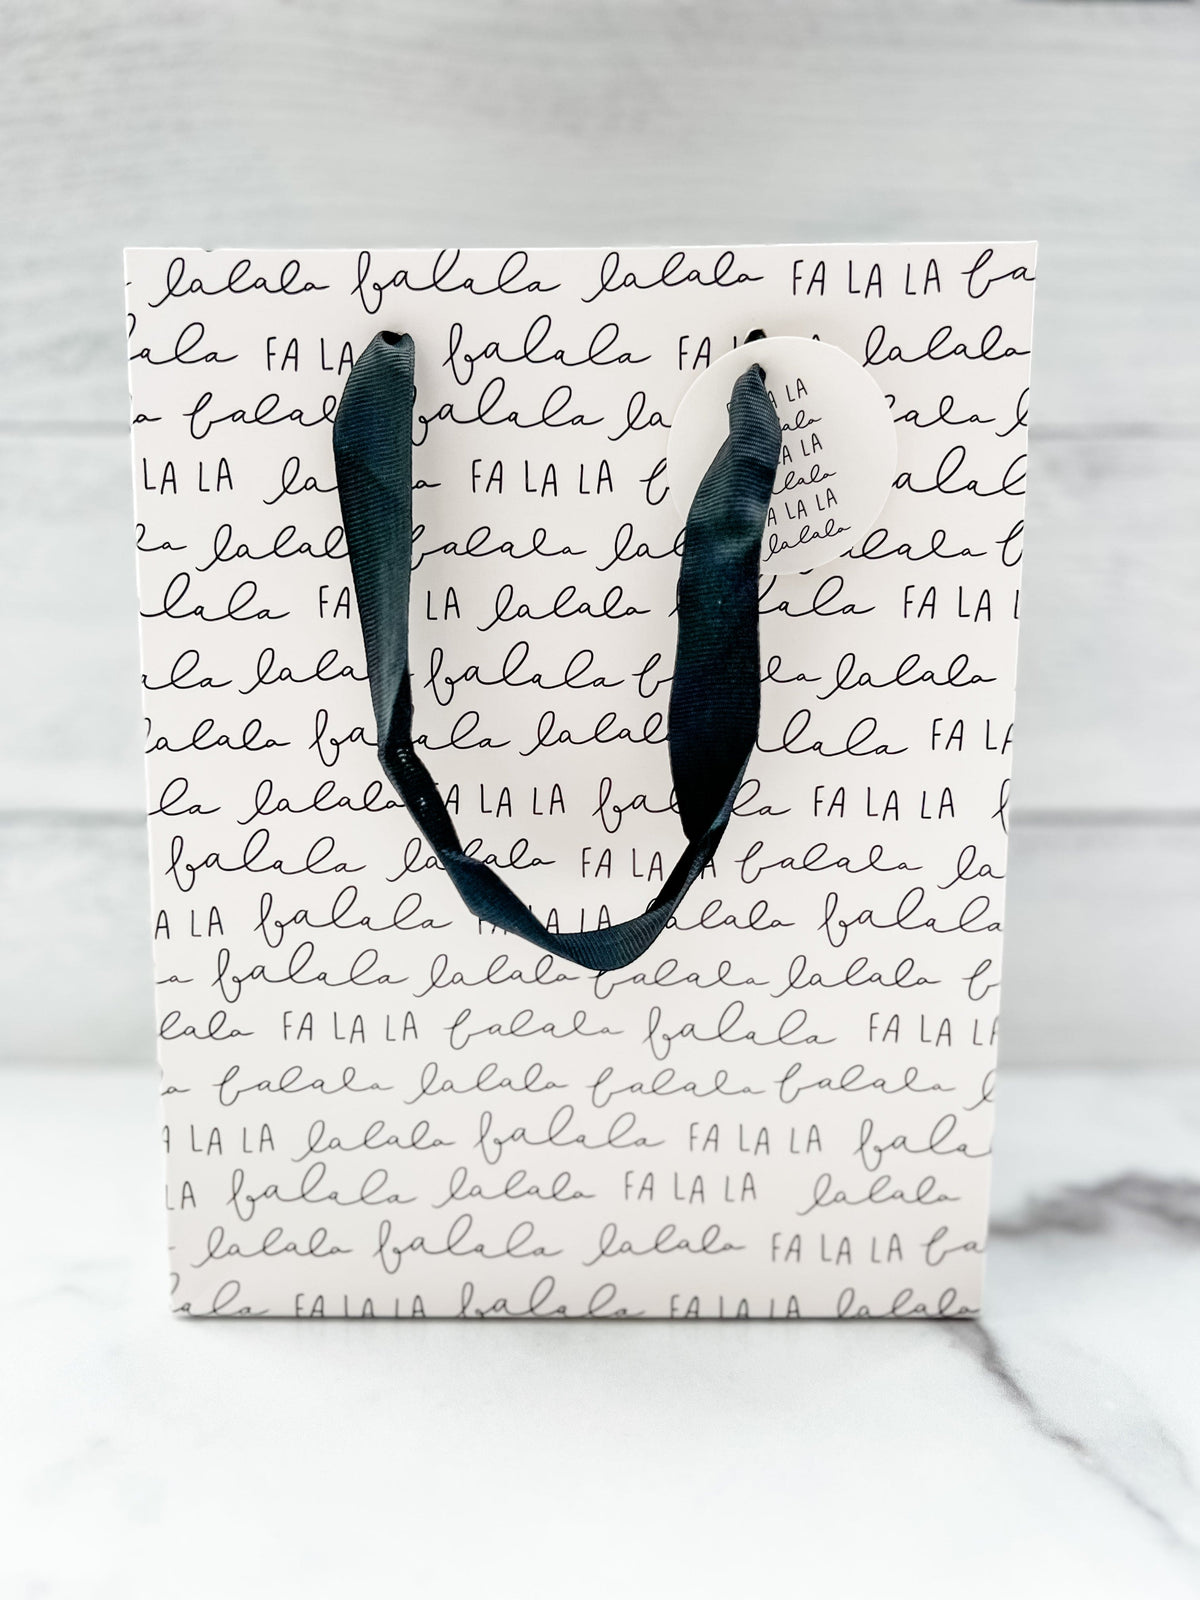 lalala falala lalala FA LA LA fa
ala FA LA falala FA lalala
a falal falala la ala l
LA LA la a FA LA LA f alal
la lalal falala lal lala f
lala FA LA lalala lala FA LA L
ala lala falala f la lalala
lalala fa ala lalala lala FA LA
la lalala A LA LA fal la FA LA LA f
falala la lala FA LA A falala la
A LA falala FA LA LA lalala falala
a falala lalala falala lalala f
lala FA LA LA falala falala FA LA LA
a falala lalala falala falala l
A LA LA lalala falala FA LA LA fala
LA falala lalala FA LA LA lalala
lalala falala lalala FA LA LA fa
ala FA LA LA falala FA LA LA lalala
A LA
ala
LA LA
lala
A LA LA
lalala